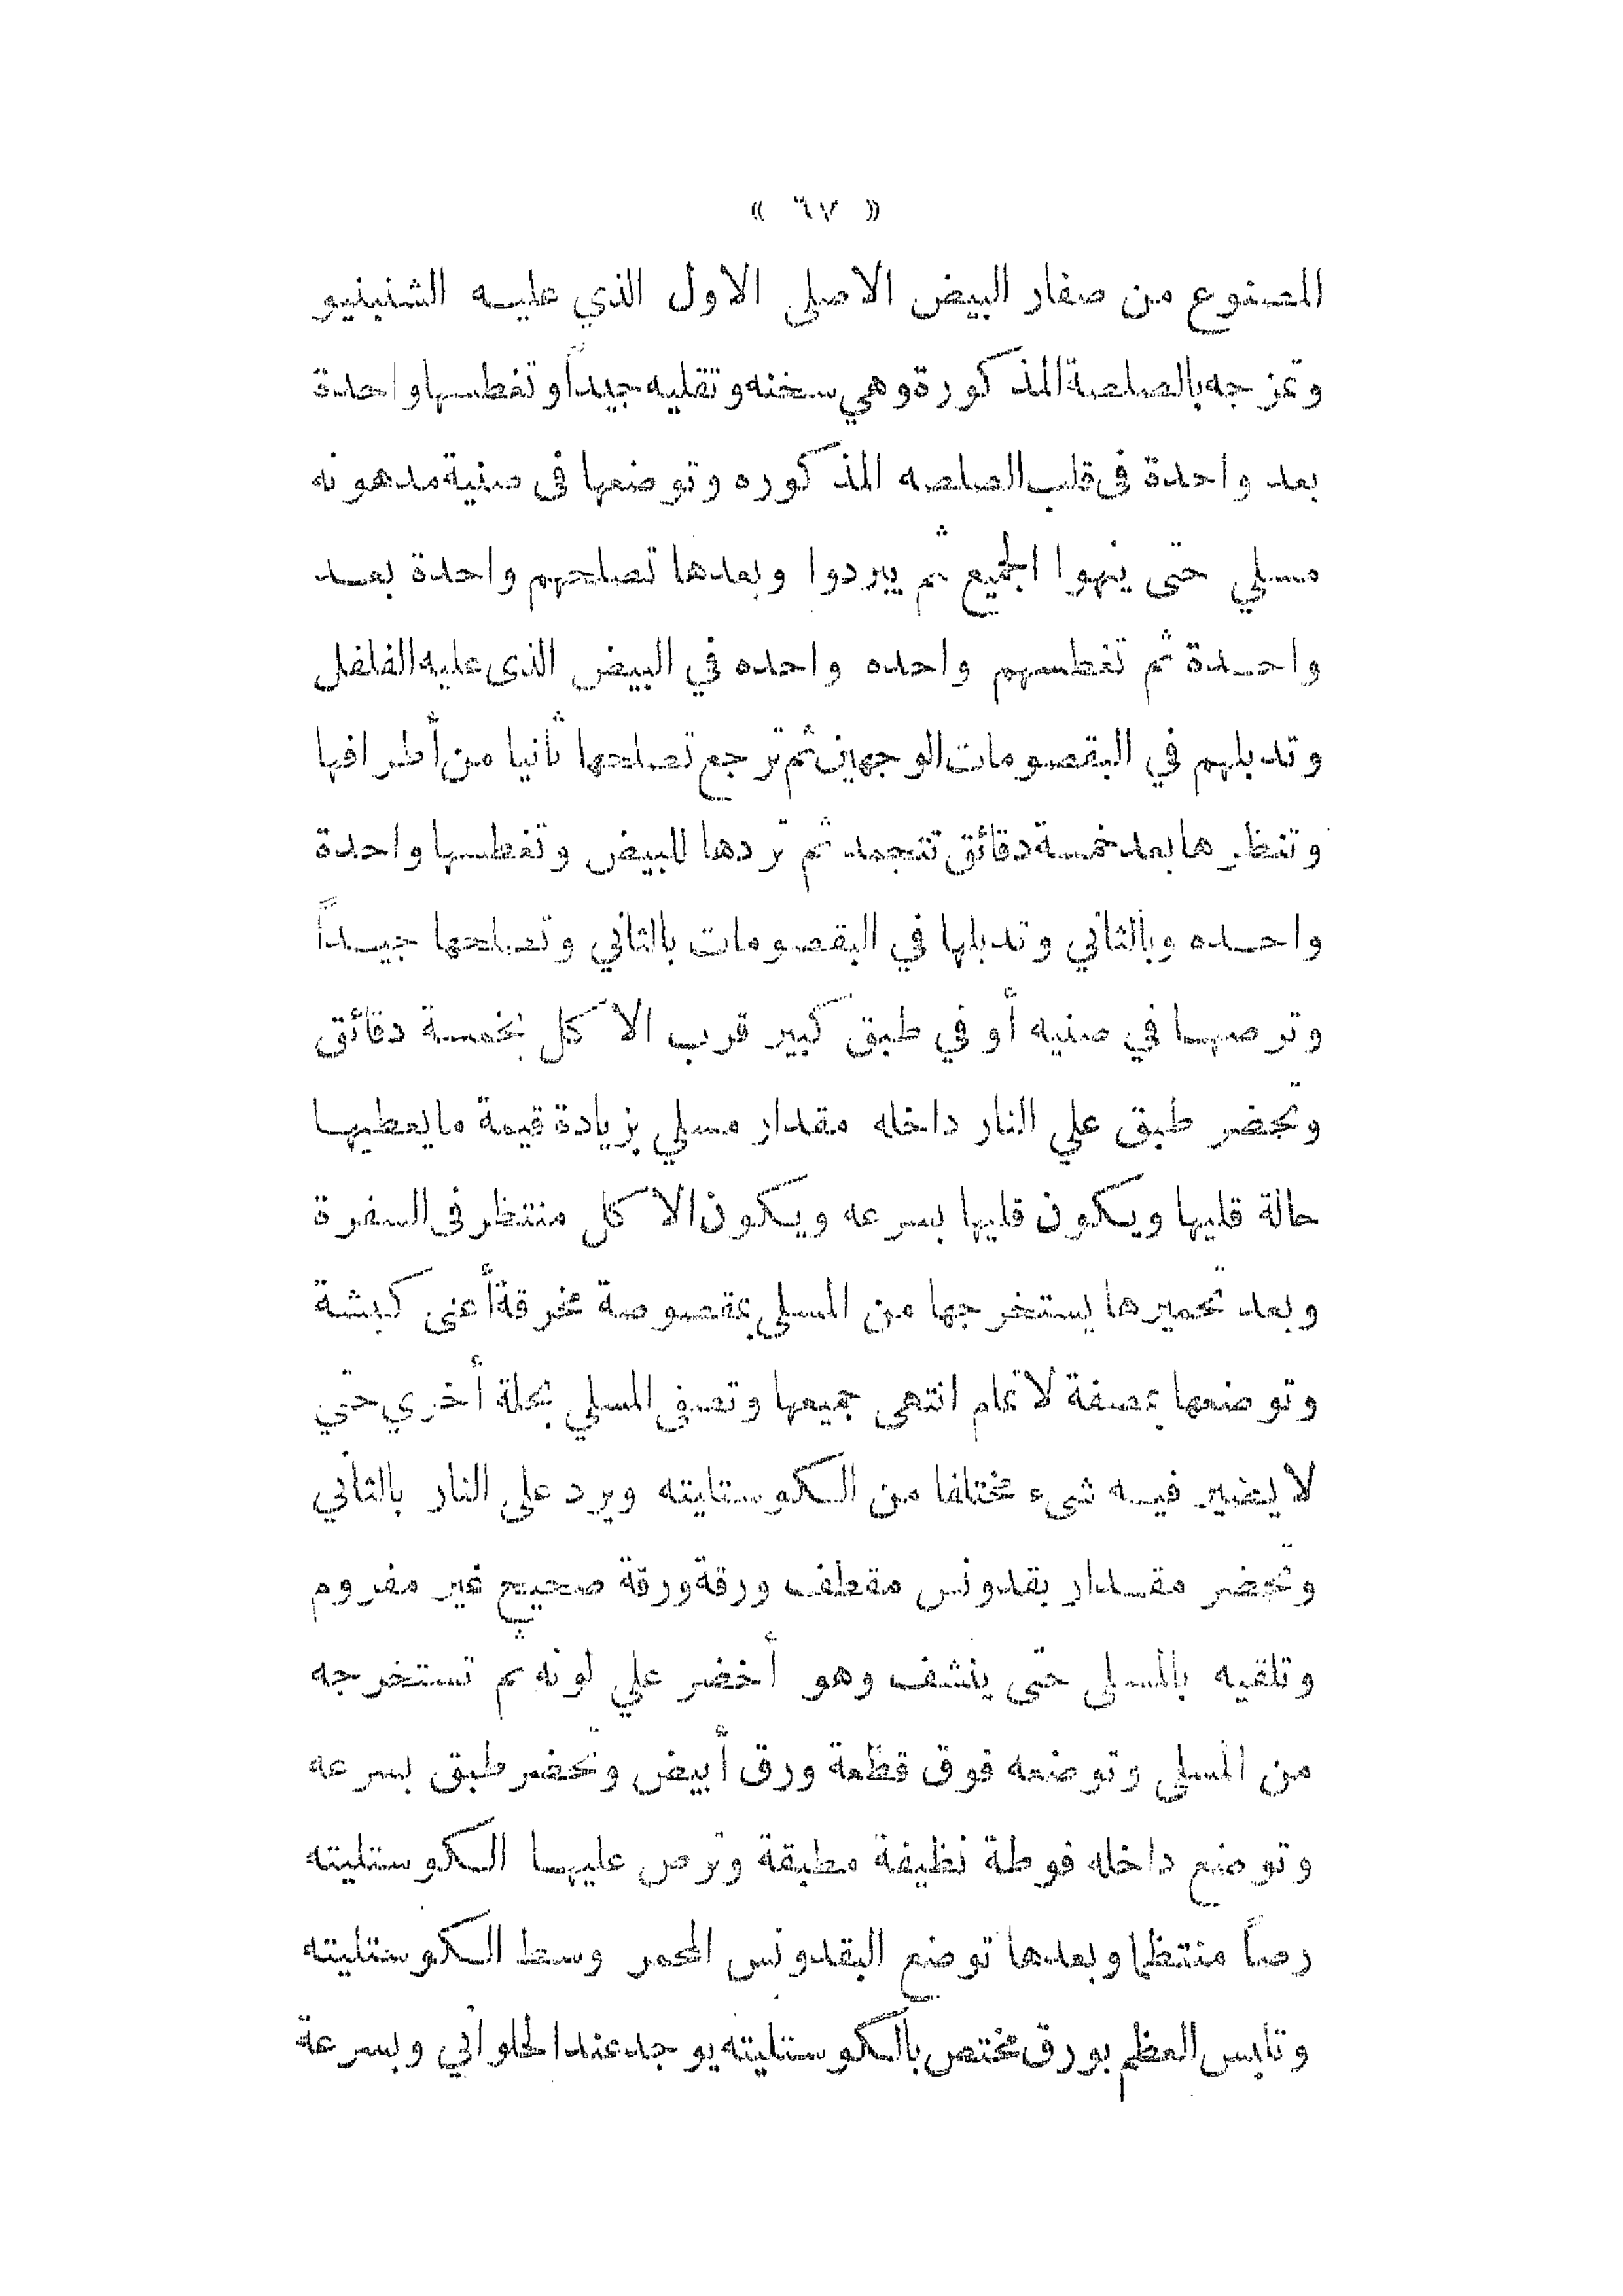 « ٦٧ »
المصنوع من صفار البيض الاصلى الاول الذي عليه الشنبنيو
وتمزجه بالصلصة المذكورة وهي سخنه وتقليه جيداً وتغطسها واحدة
بعد واحدة فى قلب الصلصه المذكوره وتوضعها فى صنية مدهونه
مسلي حتى ينهوا الجميع ثم يبردوا وبعدها تصلحهم واحدة بعد
واحدة ثم تغطسهم واحده واحده في البيض الذى عليه الفلفل
وتدبلهم في البقصومات الوجهين ثم ترجع تصلحها ثانيا من أطرافها
وتنظرها بعد خمسة دقائق تتجمد ثم تردها للبيض وتغطسها واحدة
واحده وبالثاني وتدبلها في البقصومات بالثاني وتصلحها جيداً
وترصها في صنيه أو في طبق كبير قرب الاكل بخمسة دقائق
وتحضر طبق علي النار داخله مقدار مسلي بزيادة قيمة مايعطيها
حالة قليها ويكون قليها بسرعه ويكون الاكل منتظر فى السفرة
وبعد تحميرها يستخرجها من المسلى بمقصوصة مخرقة أعنى كبشة
وتوضعها بمصفة لاتمام انتهى جميعها وتصفى المسلي بحلة أخري حتي
لايضير فيه شىء مختلفا من الكوستليته ويرد على النار بالثاني
وتحضر مقدار بقدونس مقطف ورقة ورقة صحيح غير مفروم
وتلقيه بالمسلى حتى ينشف وهو أخضر علي لونه ثم تستخرجه
من المسلى وتوضعه فوق قطعة ورق أبيض وتحضر طبق بسرعه
وتوضع داخله فوطة نظيفة مطبقة وترص عليها الكوستليته
رصاً منتظما وبعدها توضع البقدونس المحمر وسط الكوستليته
وتلبس العظم بورق مختص بالكوستليته يوجد عند الحلواني وبسرعة